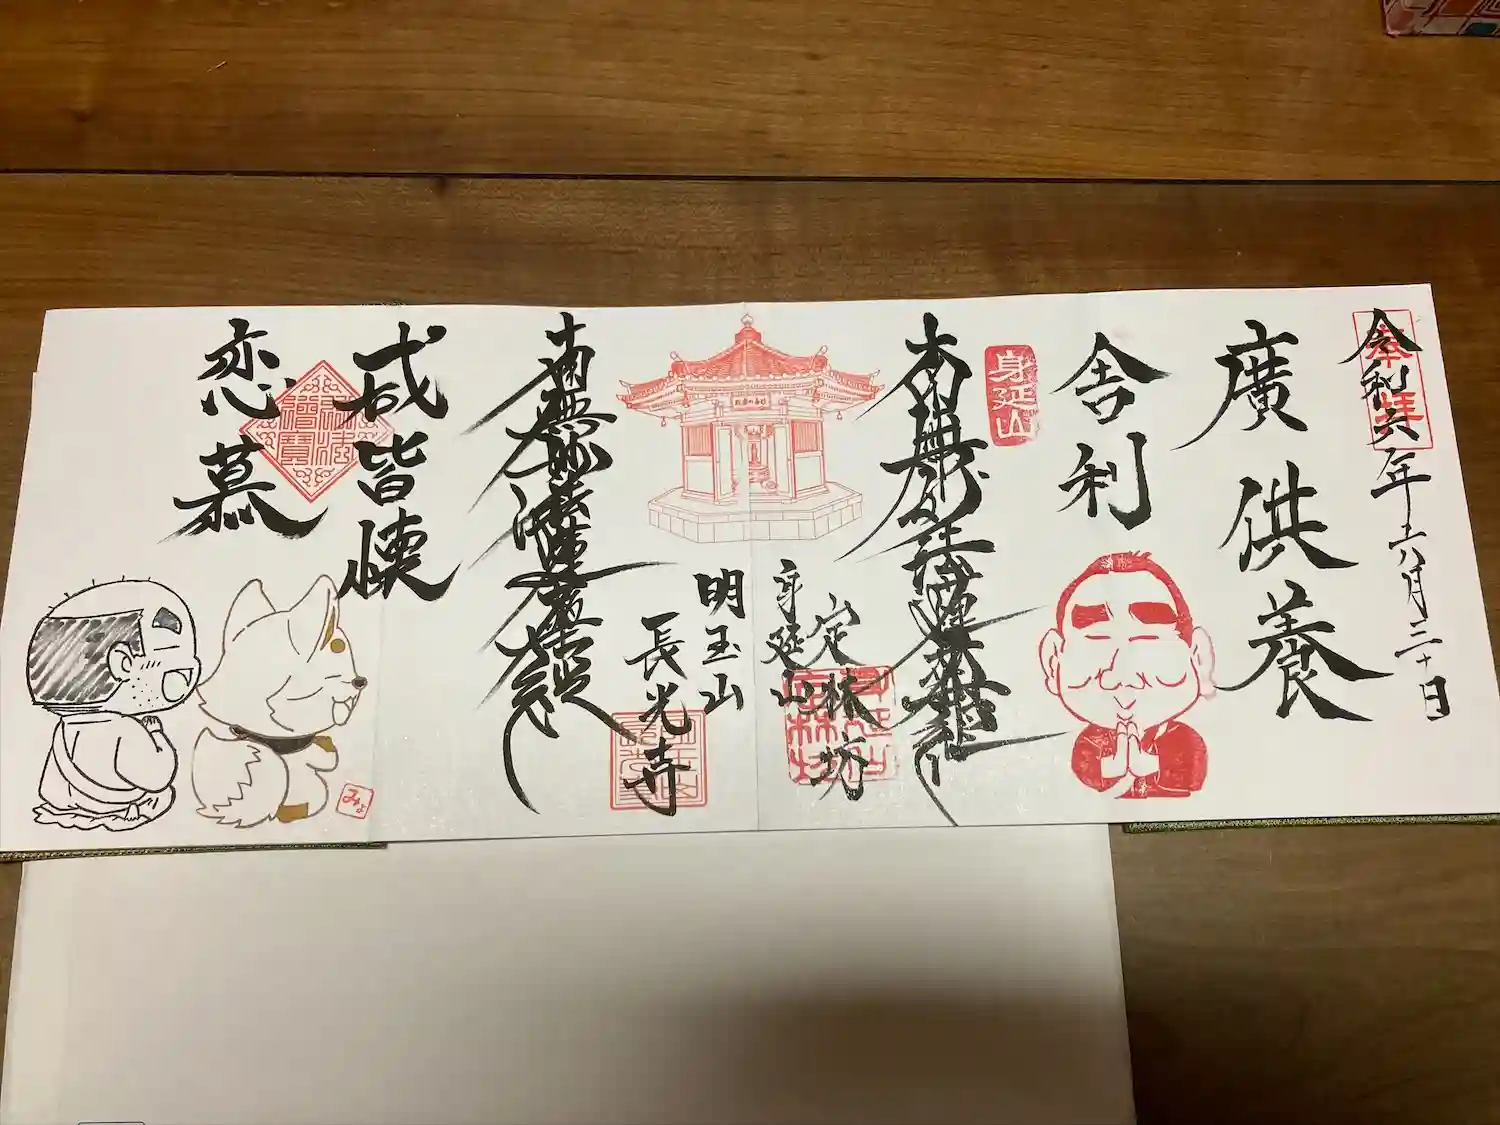 奉拝
令和六年六月三十日
廣供養
舎利
身延山
南無妙法蓮華経
定林坊
身延山
南無妙法蓮華経
明玉山
長光寺
咸皆懐
恋慕